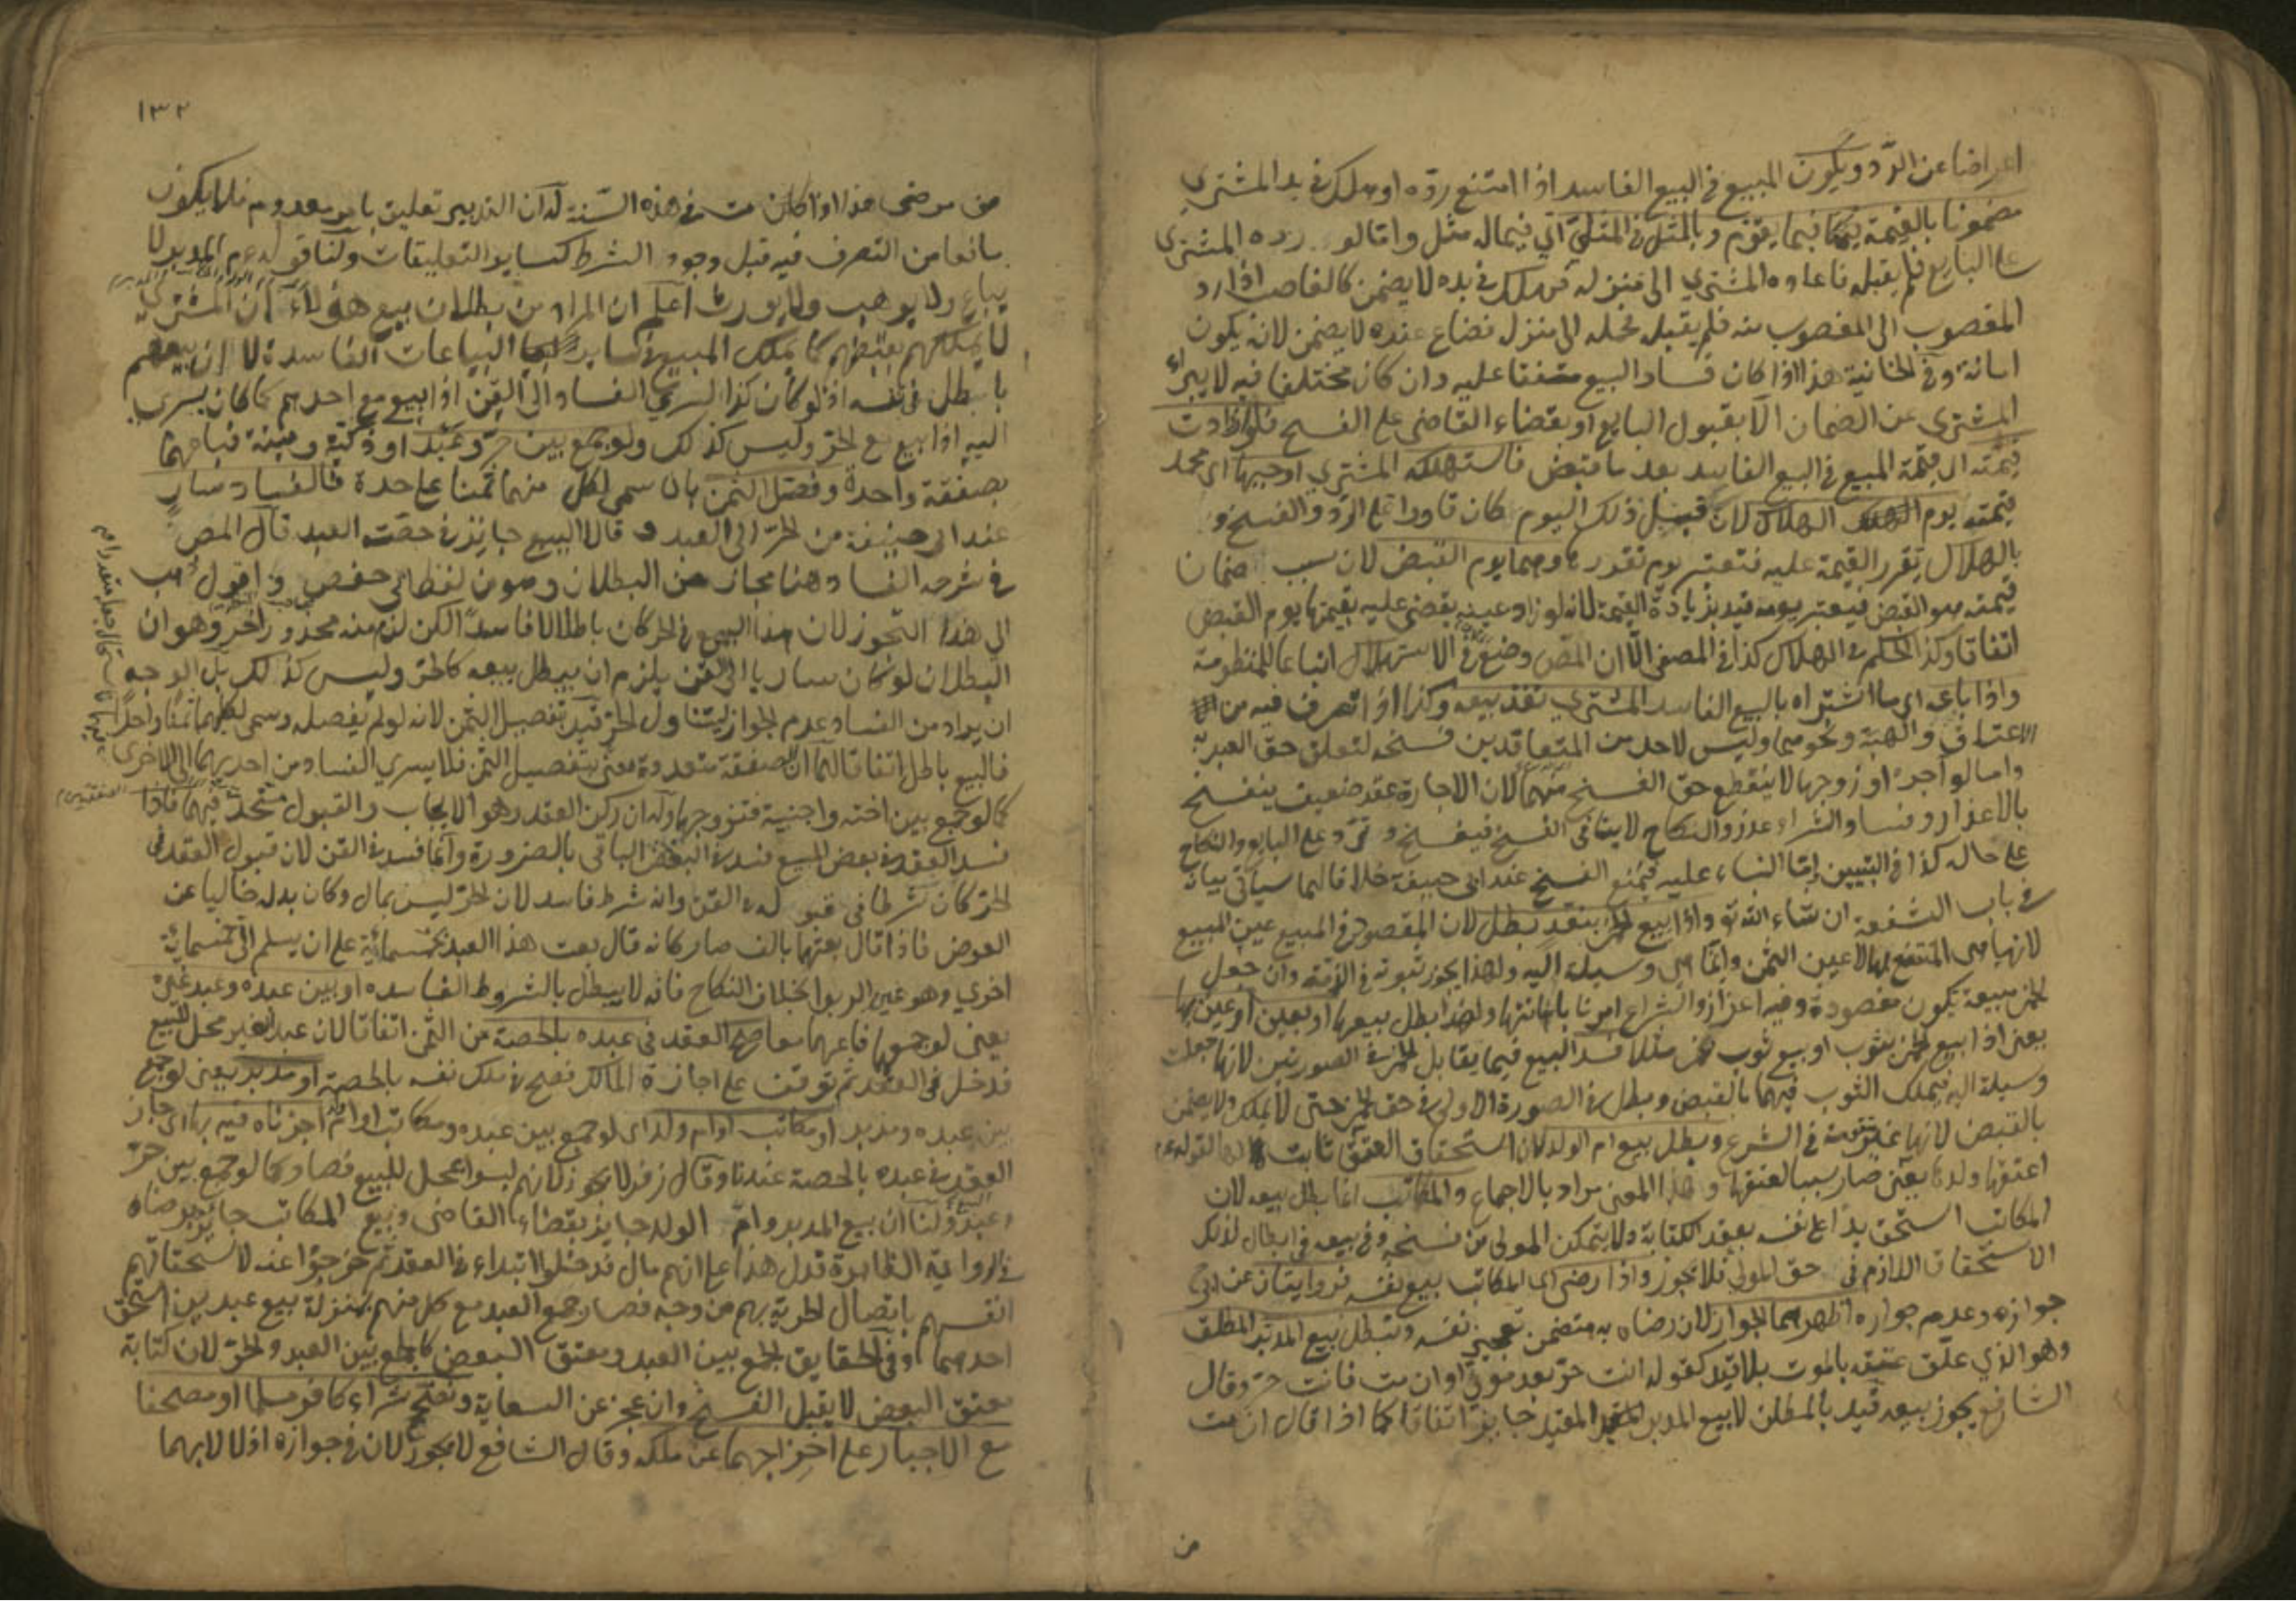 اعراضا عن الرد ويكون المبيع في البيع الفاسد اذا امتنع رده او هلك في يد المشتري
مضمونا بالقيمة فيما يقوم وبالمثل في المثلي اي فيماله مثل واما لو رده المشتري
على البايع فلم يقبله فاعاده المشتري الى منزله فهلك في يده لا يضمن كالغاصب اذا رد
المغصوب الى المغصوب منه فلم يقبله فحمله الى منزله فضاع عنده لا يضمن لانه يكون
امانة وفي الخانية هذا اذا كان فساد البيع متفقا عليه وان كان مختلفا فيه لا يبراء
المشتري عن الضمان الا بقبول البايع او بقضاء القاضي على الفسخ فلو ازدادت
قيمته اي قيمة المبيع في البيع الفاسد بعد ما قبض فاستهلكه المشتري اوجبها اي محمد
قيمته يوم الهلاك لان قبيل ذلك اليوم كان قادرا على الرد والفسخ و
بالهلاك تقرر القيمة عليه فتعتبر يوم تقرره وهما يوم القبض لان سبب ضمان
قيمته هو القبض فيعتبر يومه قيد بزيادة القيمة لانه لو زاد عينه يقضى عليه بقيمتها يوم القبض
اتفاقا وكذا الحكم في الهلاك كذا في المصفى الا ان المص وضع في الاستهلاك اتباعا للمنظومة
واذا باعه اي ما اشتراه بالبيع الفاسد المشتري نفذ بيعه وكذا اذا تصرف فيه من
الاعتاق والهبة ونحوهما وليس لاحد من المتعاقدين فسخه لتعلق حق العبد به
واما لو آجره او زوجها لا ينقطع حق الفسخ منهما لان الاجارة عقد ضعيف ينفسخ
بالاعذار وفساد الشراء عذر والنكاح لا ينافي الفسخ فيفسخ وترد على البايع والنكاح
على حاله كذا في التبيين اما البناء عليه فيمنع الفسخ عند ابي حنيفة خلافا لهما سيأتي بيانه
في باب الشفعة ان شاء الله تع واذا بيع خمر بنقد بطل لان المقصود في المبيع عين المبيع
لانها هي المنتفع بها لا عين الثمن وانما هي وسيلة اليه ولهذا يجوز ثبوته في الذمة وان جعل
الخمر مبيعة تكون مقصودة وفيه اعزاز والشراع امرنا باهانتها ولهذا بطل بيعها او بعين او عين بها
يعني اذا بيع الخمر بثوب او بيع ثوب بخمر مثلا فسد البيع فيما يقابل الخمر في الصورتين لانها جعلت
وسيلة اليه فيملك الثوب فيهما بالقبض وبطل في الصورة الاولى في حق الخمر حتى لا يملك ولا يضمن
بالقبض لانها غير متقومة في الشرع وبطل بيع ام الولد لان استحقاق العتق ثابت لها لقوله ع م
اعتقها ولدها يعني صار سببا لعتقها وهذا المعنى مراد بالاجماع والمكاتب انما بطل بيعه لان
المكاتب استحق يدا على نفسه بعقد الكتابة ولا يتمكن المولى من فسخه وفي بيعه ابطال لذلك
الاستحقاق اللازم في حق المولى فلا يجوز واذا رضي اي المكاتب ببيع نفسه فروايتان عن ابي
جوازه وعدم جوازه اظهرهما الجواز لان رضاه به متضمن تعجيز نفسه وتبطل بيع المدبر المطلق
وهو الذي علق عتقه بالموت بلا قيد كقوله انت حر بعد موتي او ان مت فانت حر وقال
الشافعي يجوز بيعه قيد بالمطلق لان بيع المدبر المقيد جايز اتفاقا كما اذا قال ان مت
من
١٣٢
من مرضي هذا او اذا كان مت في هذه السنة له ان التدبير تعليق بامر معدوم فلا يكون
مانعا من التصرف فيه قبل وجود الشرط كساير التعليقات ولنا قوله ع م المدبر لا
يباع ولا يوهب ولا يورث اعلم ان المراد من بطلان بيع هؤلاء ان المشتري
لا يملكهم بقبضهم كما يملك المبيع في ساير البياعات الفاسدة لا ان بيعهم
باطل في نفسه اذ لو كان كذا لسرى الفساد الى القن اذا بيع مع احدهم كما كان يسري
اليه اذا بيع مع الحر وليس كذلك ولو جمع بين حر وعبد او ذكية وميتة فباعهما
بصفقة واحدة وفصل الثمن بان سمى لكل منهما ثمنا على حدة فالفساد سار
عند ابي حنيفة من الحر الى العبد وقالا البيع جايز في حصة العبد قال المص
في شرحه الفساد هنا مجاز عن البطلان وصون لفظ ابي حفص واقول
الى هذا التجوز لان هذا البيع في الحر كان باطلا لا فاسدا لكن لزم منه محذور آخر وهو ان
البطلان لو كان ساريا الى القن يلزم ان يبطل بيعه كالحر وليس كذلك بل الوجه
ان يراد من الفساد عدم الجواز ليتناول الحر قيد بتفصيل الثمن لانه لو لم يفصله وسمى لكلهما ثمنا واحدا
فالبيع باطل اتفاقا لهما ان الصفقة متعددة معنى بتفصيل الثمن فلا يسري الفساد من احديهما الى الاخرى
كما لو جمع بين اخته واجنبية فتزوجها وله ان ركن العقد وهو الايجاب والقبول متحد فيهما فاذا
فسد العقد في بعض المبيع فسد في البعض الباقي بالضرورة وانما فسد في القن لان قبول العقد في
الحر كان شرطا في قبوله في القن وانه شرط فاسد لان الحر ليس بمال وكان بدله خاليا عن
العوض فاذا قال بعتهما بالف صار كانه قال بعت هذا العبد بخمسمائة على ان يسلم الي خمسمائة
اخرى وهو عين الربوا بخلاف النكاح فانه لا يبطل بالشروط الفاسدة او بين عبده وعبد غيره
يعني لو جمعهما فباعهما معا صح العقد في عبده بالحصة من الثمن اتفاقا لان عبد الغير محل للبيع
فدخل في العقد ثم توقف على اجازة المالك فصح في ملك نفسه بالحصة او مدبر يعني لو جمع
بين عبده ومدبر او مكاتب او ام ولد اي لو جمع بين عبده ومكاتب او ام ولد اجزناه فيه بها اي جاز
العقد في عبده بالحصة عندنا وقال زفر لا يجوز لانهم ليسوا بمحل للبيع فصار كما لو جمع بين حر
وعبد ولنا ان بيع المدبر وام الولد جايز بقضاء القاضي وبيع المكاتب جايز برضاه
في الرواية الظاهرة فدل هذا على انهم مال فدخلوا ابتداء في العقد ثم خرجوا عنه لاستحقاقهم
انفسهم باتصال الحرية بهم من وجه فصار جمع العبد مع كل منهم بمنزلة بيع عبدين استحق
احدهما وفي الحقايق الجمع بين العبد ومعتق البعض كالجمع بين العبد والحر لان كتابة
معتق البعض لا يقبل الفسخ وان عجز عن السعاية ونصحح شراء كافر مسلما او مصحفا
مع الاجبار على اخراجهما عن ملكه وقال الشافعي لا يجوز لان في جوازه اذلالا بهما